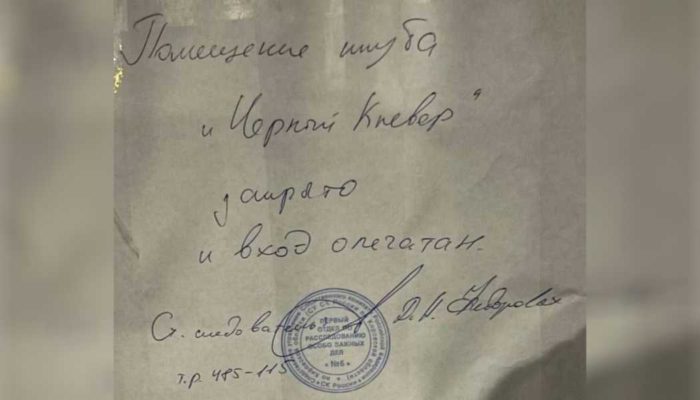 Помещение клуба
„Черный Клевер“
закрыто
и вход опечатан.
Ст. следователь Д.Н.
т.р. 485-115
ПЕРВЫЙ
ОТДЕЛ ПО
РАССЛЕДОВАНИЮ
ОСОБО ВАЖНЫХ
ДЕЛ
№6